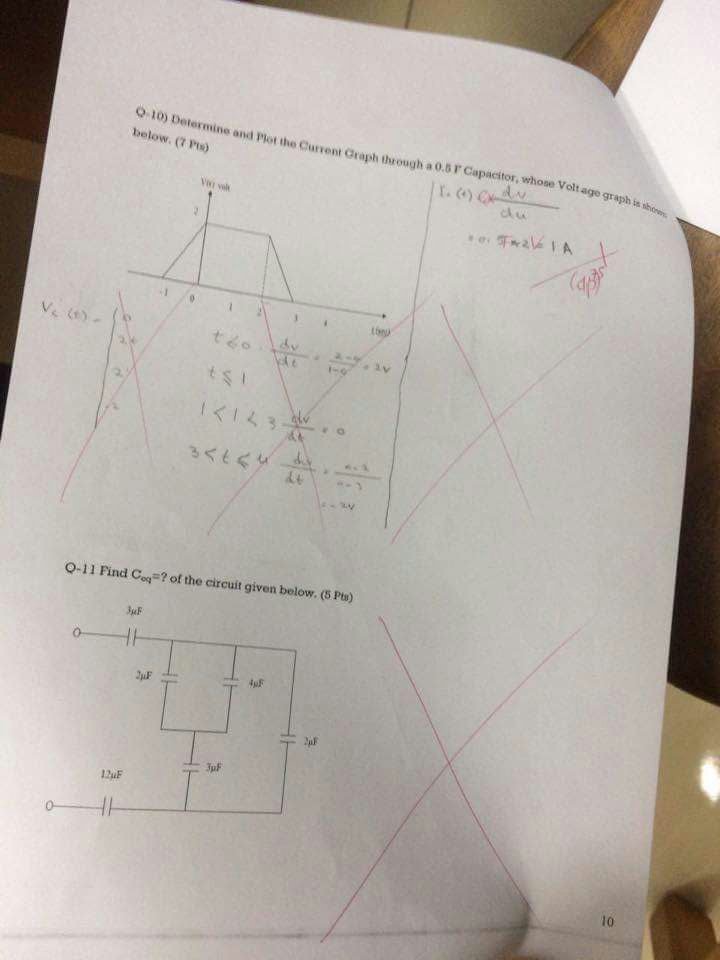 Q-10) Determine and Plot the Current Graph through a 0.5 F Capacitor, whose Voltage graph is shown
below. (7 Pts)
V(t) volt
2
-1 0 1 2 3 4
t(sec)
dv
du
1 A
Vc (t) =
t≤0 dv/dt = = 2V
t≤1
1<1<3 dv/dt = 0
3<t≤4 dv/dt =
= -2V
Q-11 Find Ceq=? of the circuit given below. (5 Pts)
3μF
2μF
4μF
2μF
3μF
12μF
10